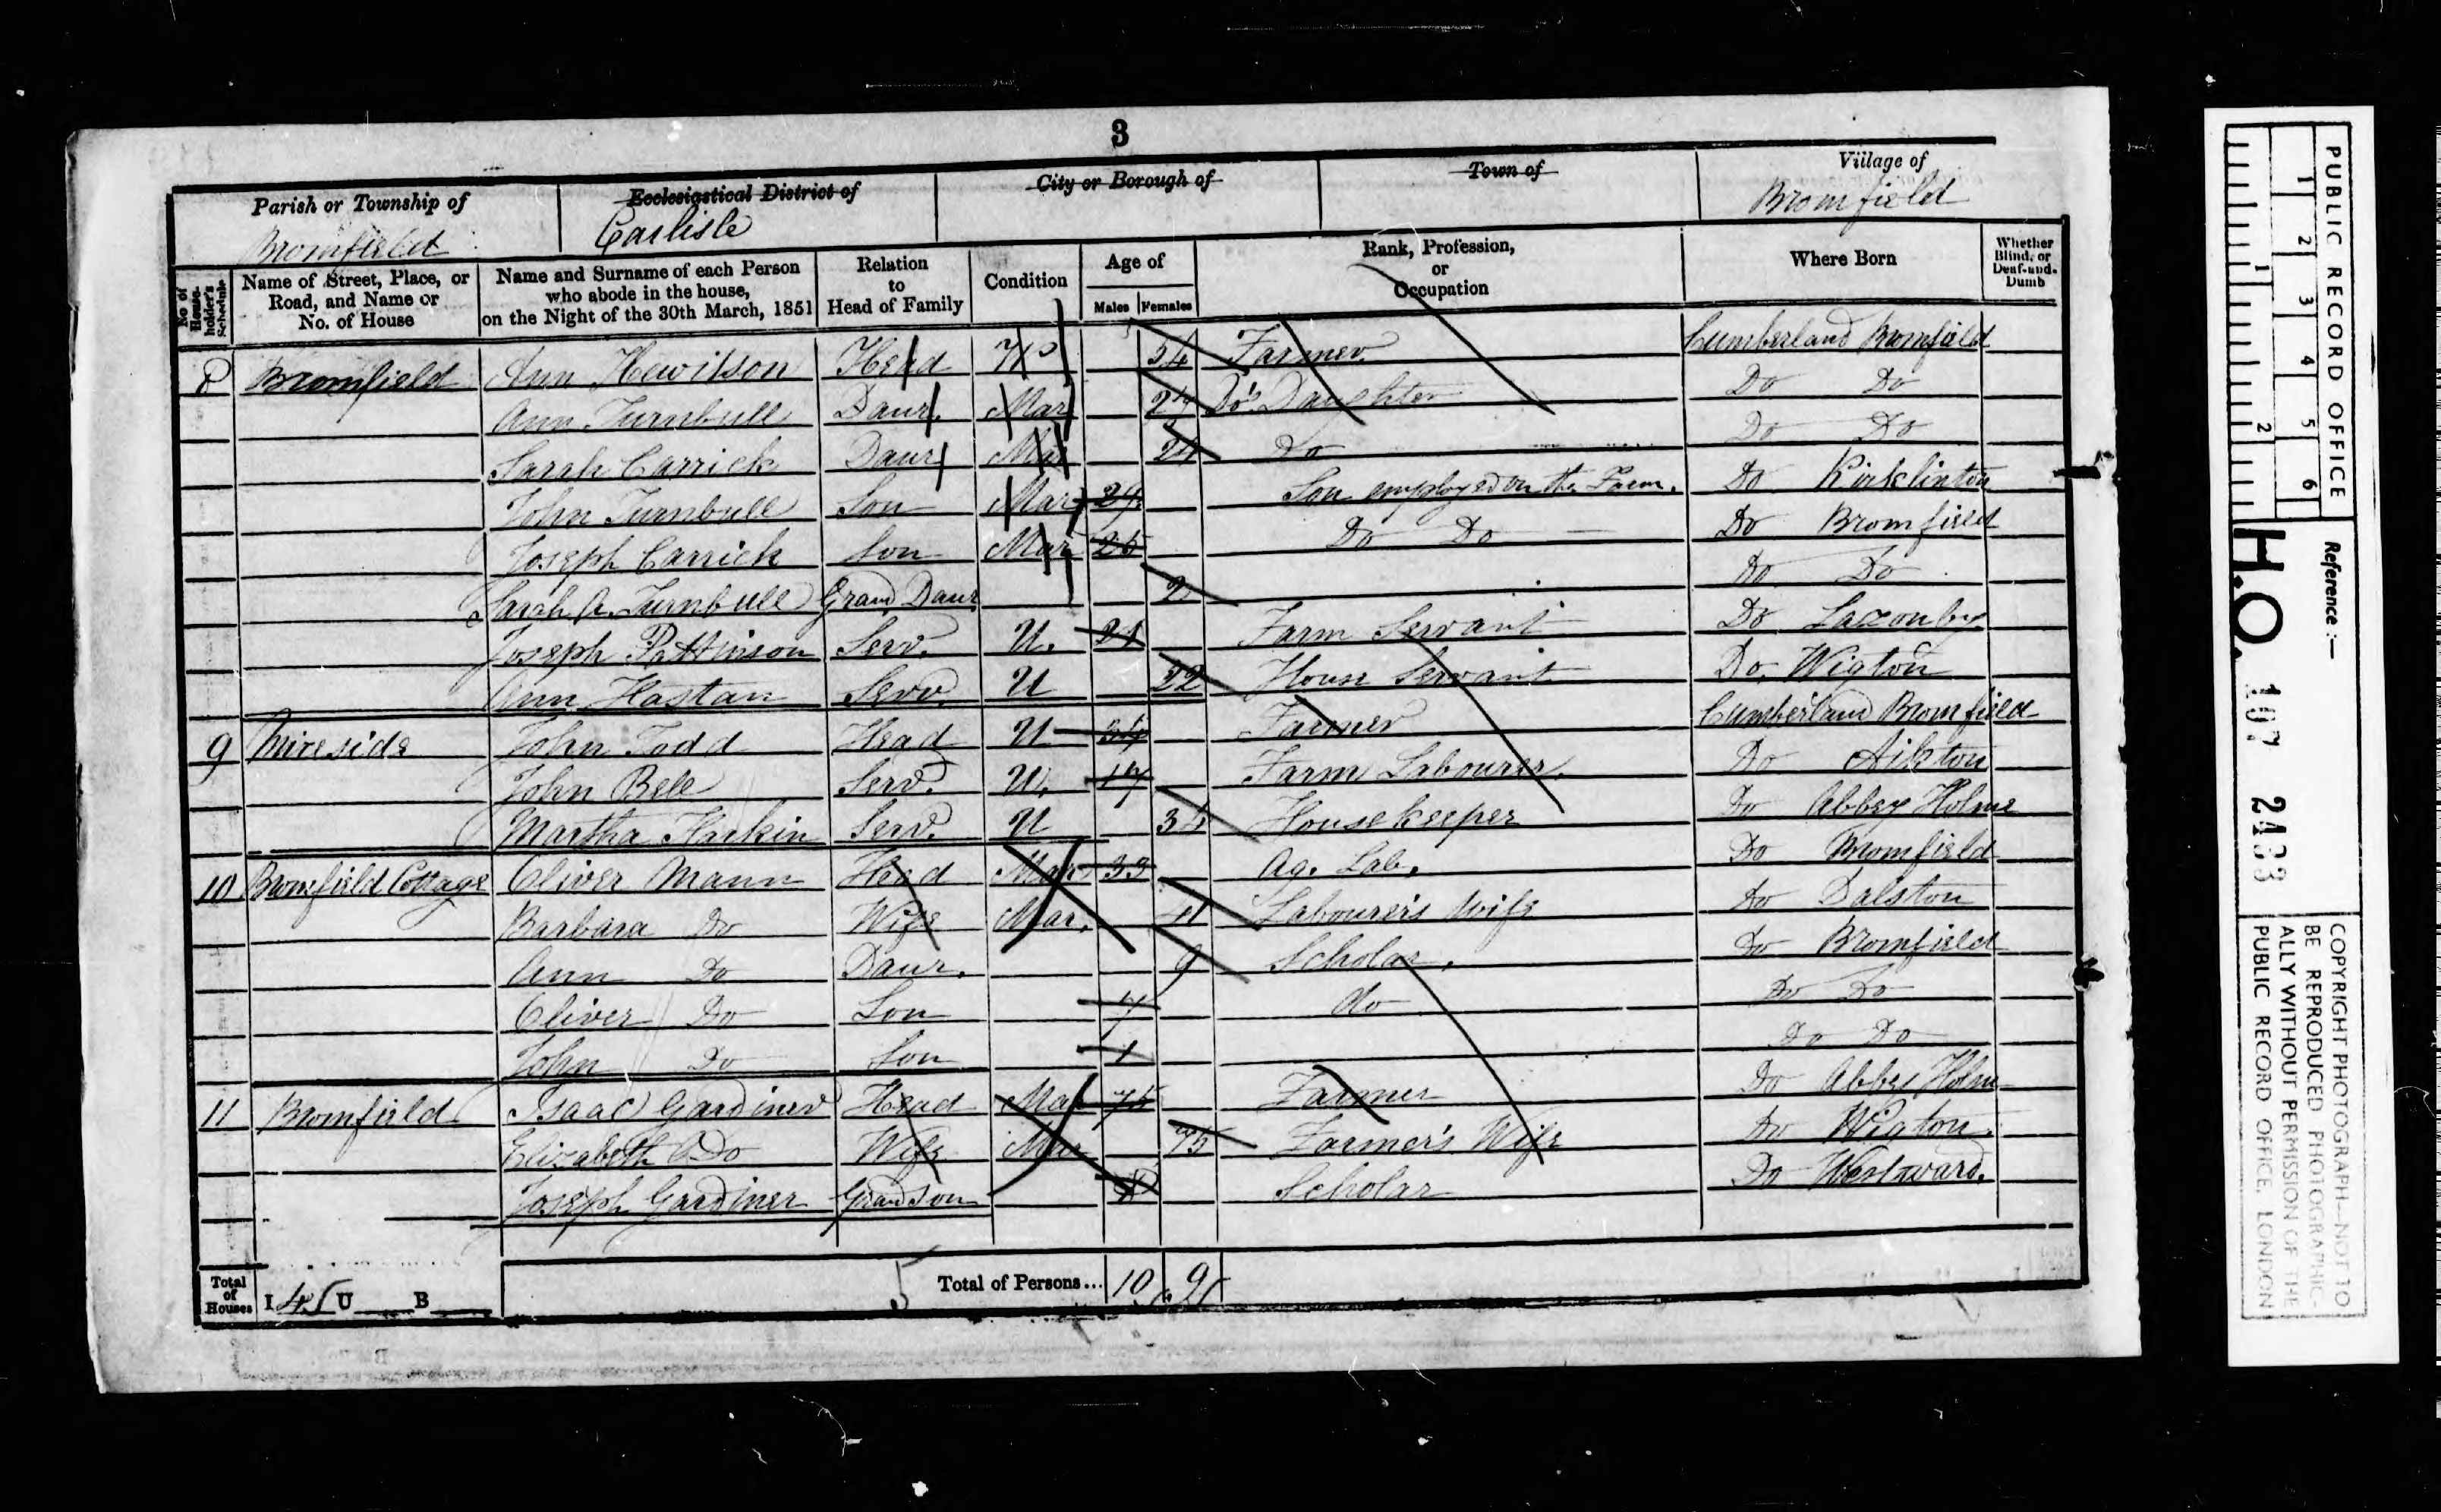 3
Parish or Township of Ecclesiastical District of City or Borough of Town of Village of
Bromfield Carlisle Bromfield
No. of House-holder's Schedule Name of Street, Place, or Road, and Name or No. of House Name and Surname of each Person who abode in the house, on the Night of the 30th March, 1851 Relation to Head of Family Condition Age of Males Females Rank, Profession, or Occupation Where Born Whether Blind, or Deaf-and-Dumb
8 Bromfield Ann Hewitson Head 54 Farmer Cumberland Bromfield
Ann Turnbull Daur. Mar 27 Do's Daughter Do Do
Sarah Carrick Daur Mar 24 Do Do Do
John Turnbull Son Mar 29 Son employed on the Farm. Do Kirklinton
Joseph Carrick Son Mar 25 Do Do Do Bromfield
Sarah A. Turnbull Grand Daur 2 Do Do
Joseph Pattinson Serv. U. 21 Farm Servant Do Lazonby
Ann Hastan Serv. U 22 House Servant Do. Wigton
9 Mireside John Todd Head U 34 Farmer Cumberland Bromfield
John Bell Serv. U. 17 Farm Labourer. Do Aikton
Martha Harkin Serv. U 34 Housekeeper Do Abbey Holme
10 Bromfield Cottage Oliver Mann Head Mar 33 Ag. Lab. Do Bromfield
Barbara Do Wife Mar. 41 Labourer's Wife Do Dalston
Ann Do Daur. 9 Scholar. Do Bromfield
Oliver Do Son 7 do Do Do
John Do Son 1 Do Do
11 Bromfield Isaac Gardiner Head Mar 75 Farmer Do Abbey Holm
Elizabeth Do Wife Mar 75 Farmer's Wife Do Wigton.
Joseph Gardiner Grandson Scholar Do Westward.
Total of Houses I 4 U B 5 Total of Persons... 10 9
PUBLIC RECORD OFFICE
1 2 3 4 5 6
1 2
Reference :—
H.O. 107 2433
COPYRIGHT PHOTOGRAPH—NOT TO BE REPRODUCED PHOTOGRAPHIC-ALLY WITHOUT PERMISSION OF THE PUBLIC RECORD OFFICE, LONDON